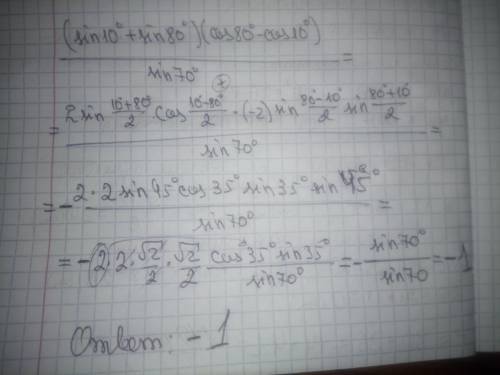 (sin10°+sin80°)(cos80°-cos10°)/sin70° =
= 2sin (10°+80°)/2 · cos (10°-80°)/2 · (-2) sin (80°-10°)/2 sin (80°+10°)/2 / sin70° =
= - 2·2 sin45° cos35° sin35° sin45° / sin70° =
= - 2·2·√2/2·√2/2 cos35° sin35° / sin70° = - sin70°/sin70 = -1
Ответ: -1